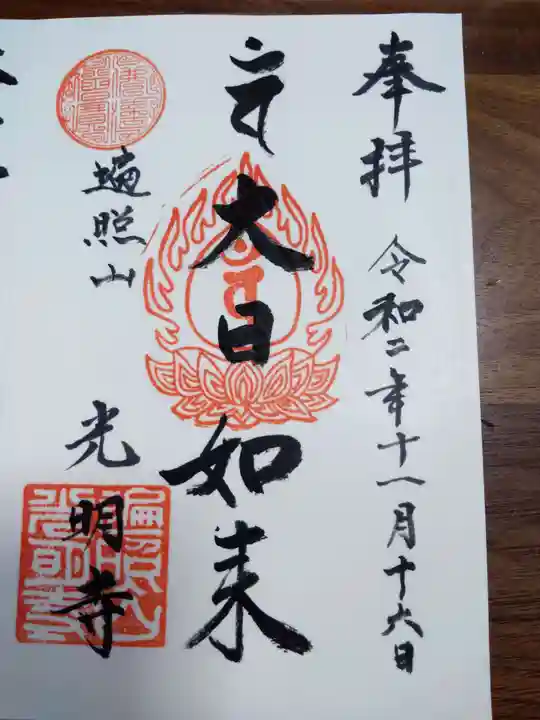 奉拝 令和二年十一月十六日
大日如来
遍照山
光明寺